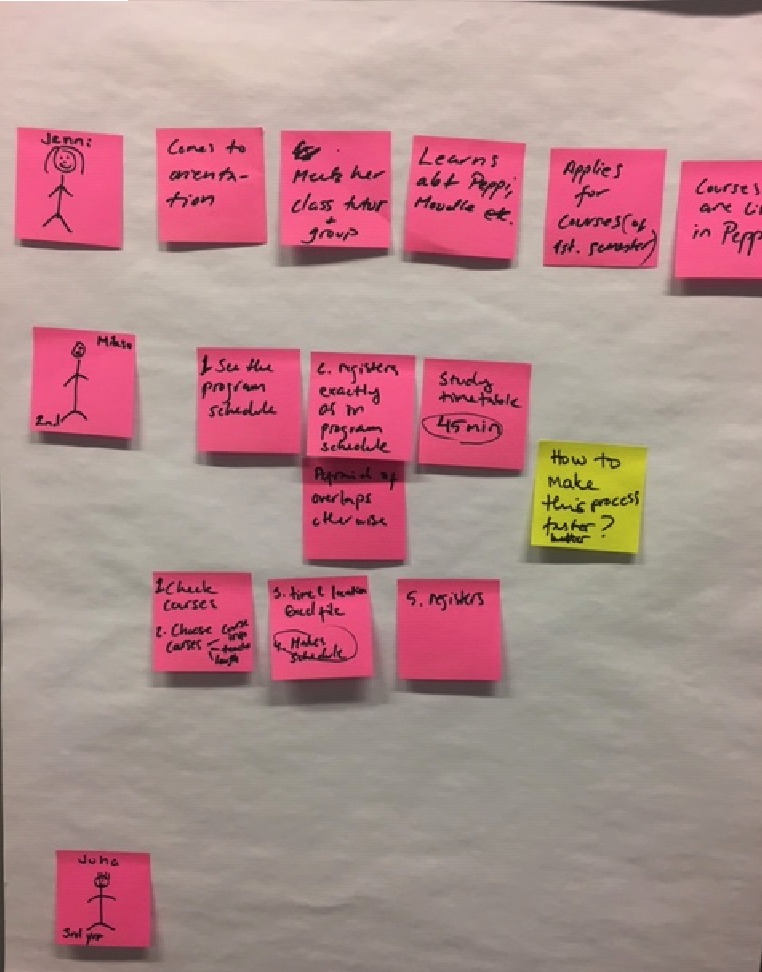 Jenni
Comes to
orienta-
tion
Meets her
class tutor
+
group
Learns
abt Peppi,
Moodle etc.
Applies
for
Courses (of
1st. semester)
Courses
are
in Pepp
2nd
1. See the
program
schedule
2. registers
exactly
as in
program
schedule
overlaps
otherwise
Study
timetable
45 min
How to
make
this process
faster?
better
1. Check
courses
2. Choose course
courses
length
3. time & location
Excel file
4. Makes
schedule
5. registers
Juha
3rd year